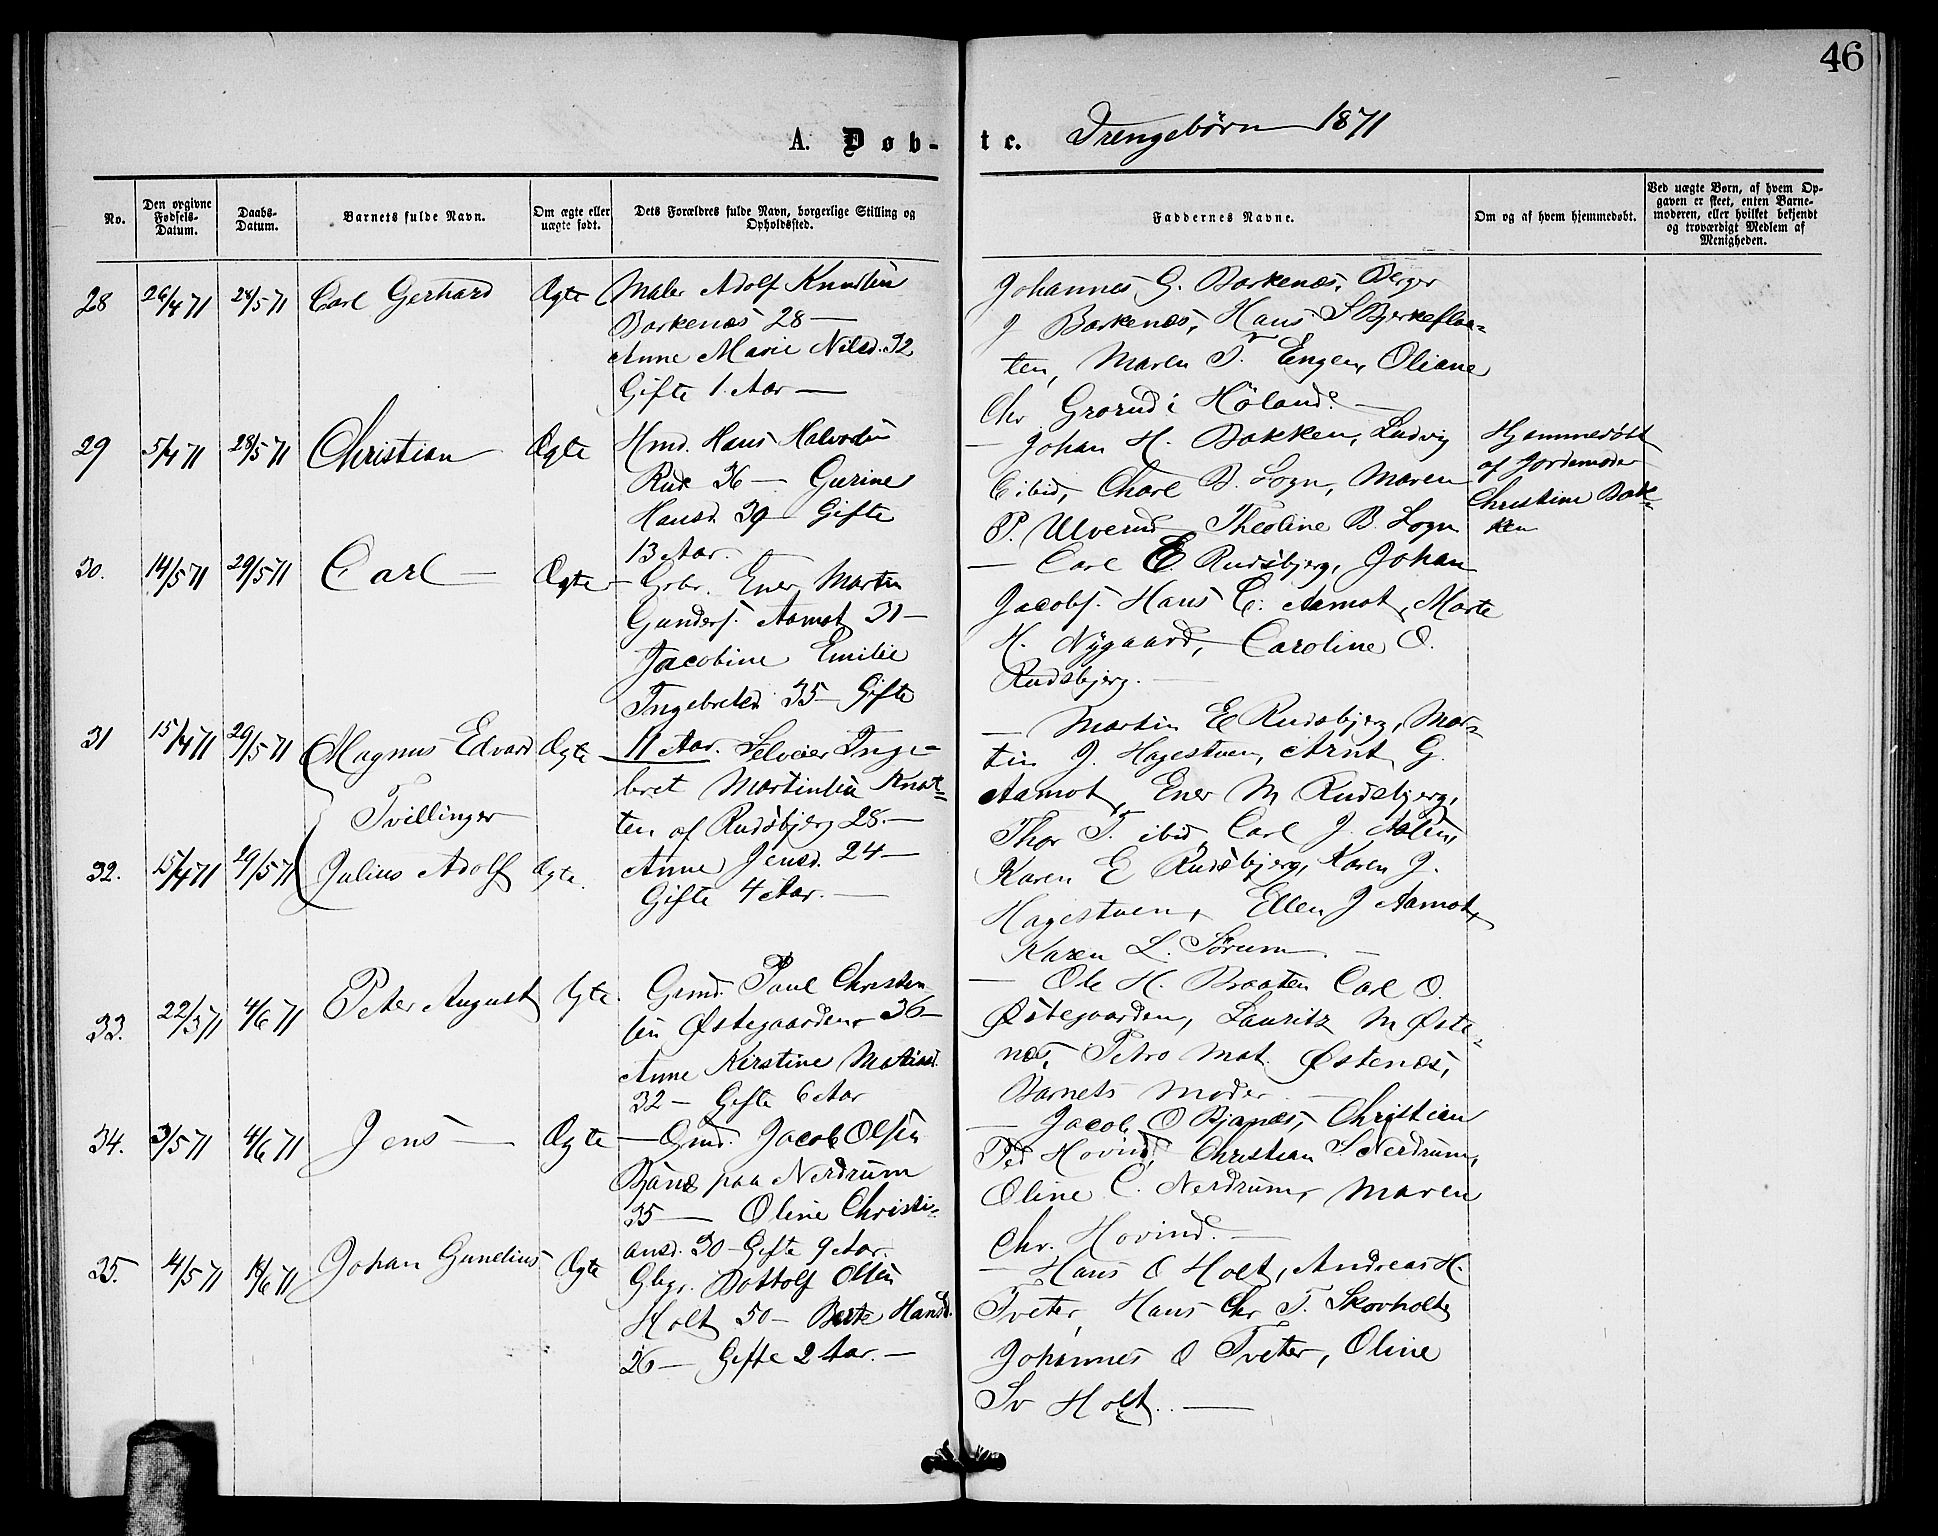 46
A. Døb-te. Drengebørn 1871
No.
Den opgivne Fødsels-Datum.
Daabs-Datum.
Barnets fulde Navn.
Om ægte eller uægte født.
Dets Forældres fulde Navn, borgerlige Stilling og Opholdssted.
Faddernes Navne.
Om og af hvem hjemmedøbt.
Ved uægte Børn, af hvem Opgaven er skeet, enten Barnemoderen, eller hvilket bekjendt og troværdigt Medlem af Menigheden.
28 26/4 71 28/5 71 Carl Gerhard Ægte Maler Adolf Knudsen
Barkenæs 28 —
Anne Marie Nilsd. 32
Gifte 1. Aar —
Johannes G. Barkenæs, Berger
J Barkenæs, Hans S Bjerkeflaa-
ten, Maren T. Engen, Oliane
Chr Grorud i Høland. —
29 5/4 71 28/5 71 Christian Ægte Hmd. Hans Halvorsen
Rud 36 — Gurine
Hansd. 39 Gifte
13 Aar. —
— Johan H. Bakken, Ludvig
E ibid, Charl B. Logn, Maren
P. Ulverud Theoline B. Logn
Hjemmedøbt
af Jordemoder
Christine Bak-
ken
30. 14/5 71 29/5 71 Carl — Ægte — Grbr. Ener Martin
Gunders. Aamot 31 —
Jacobine Emilie
Ingebretsd. 35 — Gifte
11 Aar.
— Carl E. Rudsbjerg, Johan
Jacobs. Hans E. Aamot, Marte
H. Nygaard, Caroline O.
Rudsbjerg. —
31 15/4 71 29/5 71 Magnus Edvard Ægte Selveier Inge-
bret Martinsen Knat-
ten af Rudsbjerg 28. —
Tvillinger
32. 15/4 71 29/5 71 Julius Adolf Ægte. Anne Jensd. 24 —
Gifte 4 Aar. —
— Martin E Rudsbjerg, Mar-
tin J. Hagestuen, Arnt G.
Aamot, Ener M Rudsbjerg,
Thor T. ibid, Carl J.
Karen E Rudsbjerg, Karen J.
Hagestuen, Ellen J Aamot,
Karen L. Sørum. —
33. 22/3 71 4/6 71 Peter August Ægte. Grmd. Paul Christen
sen Østegaarden 36 —
Anne Kirstine Matiasd.
32 — Gifte 6 Aar
— Ole H. Braaten Carl O.
Østegaarden, Lauritz M Øste-
næs, Petro Mat. Østenæs,
Barnets Moder —
34. 3/5 71 4/6 71 Jens — Ægte — Grmd. Jacob Olsen
paa Nerdrum
35 — Oline Christi-
ansd. 30 — Gifte 9 Aar.
— Jacob O Bjanæs, Christian
Ped Hovind, Christian S Nerdrum,
Oline C. Nerdrum, Maren
Chr. Hovind. —
35. 14/5 71 18/6 71 Johan Gunelius Ægte Gbgr. Bottolf Olsen
Holt 50 — Berte Hansd.
26 — Gifte 2 Aar. —
— Hans O Holt, Andreas H.
Tveter, Hans Chr T. Skovholt
Johannes O Tveter, Oline
Sv Holt. —